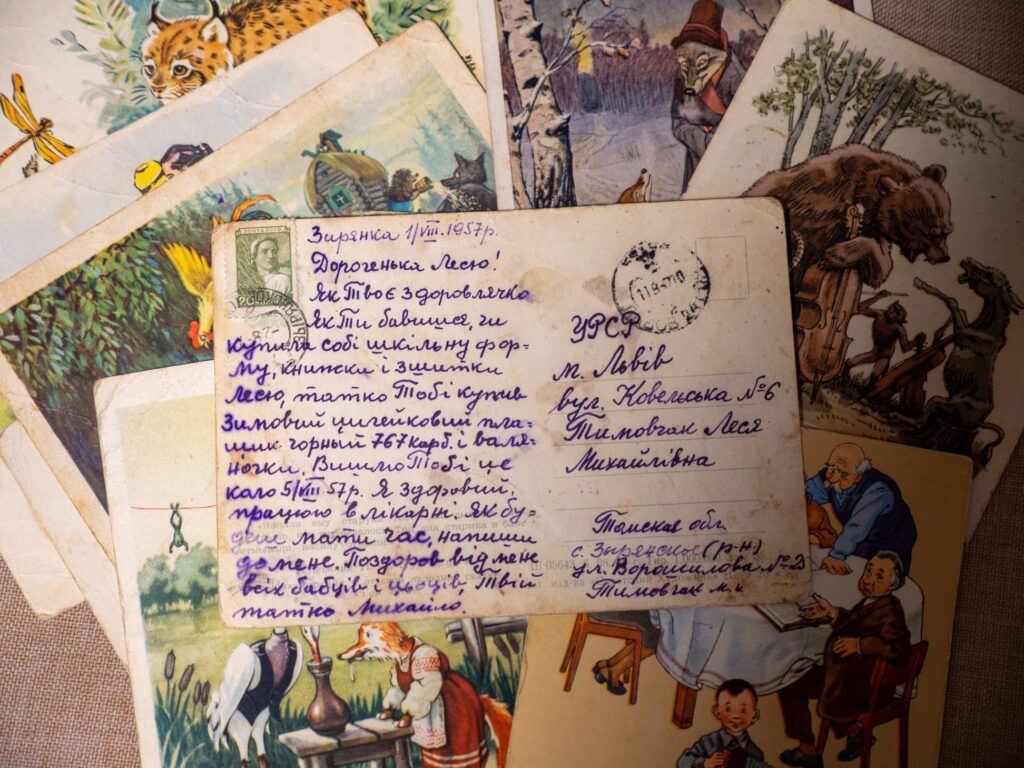 ПОЧТА СССР
Зирянка 1/VIII.1957р.
Дорогенька Лесю!
Як Твоє Здоровлячко
Як Ти бавишся, чи
купила собі шкільну фор-
му, книжки і зшитки
Лесю, татко Тобі купив
Зимовий цигейковий пла-
щик чорний 767 карб. і валя-
ночки. Вишлю Тобі це
коло 5/VIII 57р. Я Здоровий,
працюю в лікарні. Як бу-
деш мати час, напиши
до мене. Поздоров від мене
всіх бабців і цьоців, Твій
татко Михайло.
11.8-57.10
УРСР
м. Львів
вул. Ковельська №6
Тимовчак Леся
Михайлівна
Томская обл.
с. Зирянское (р-н)
ул. Ворошилова №23
Тимовчак М.